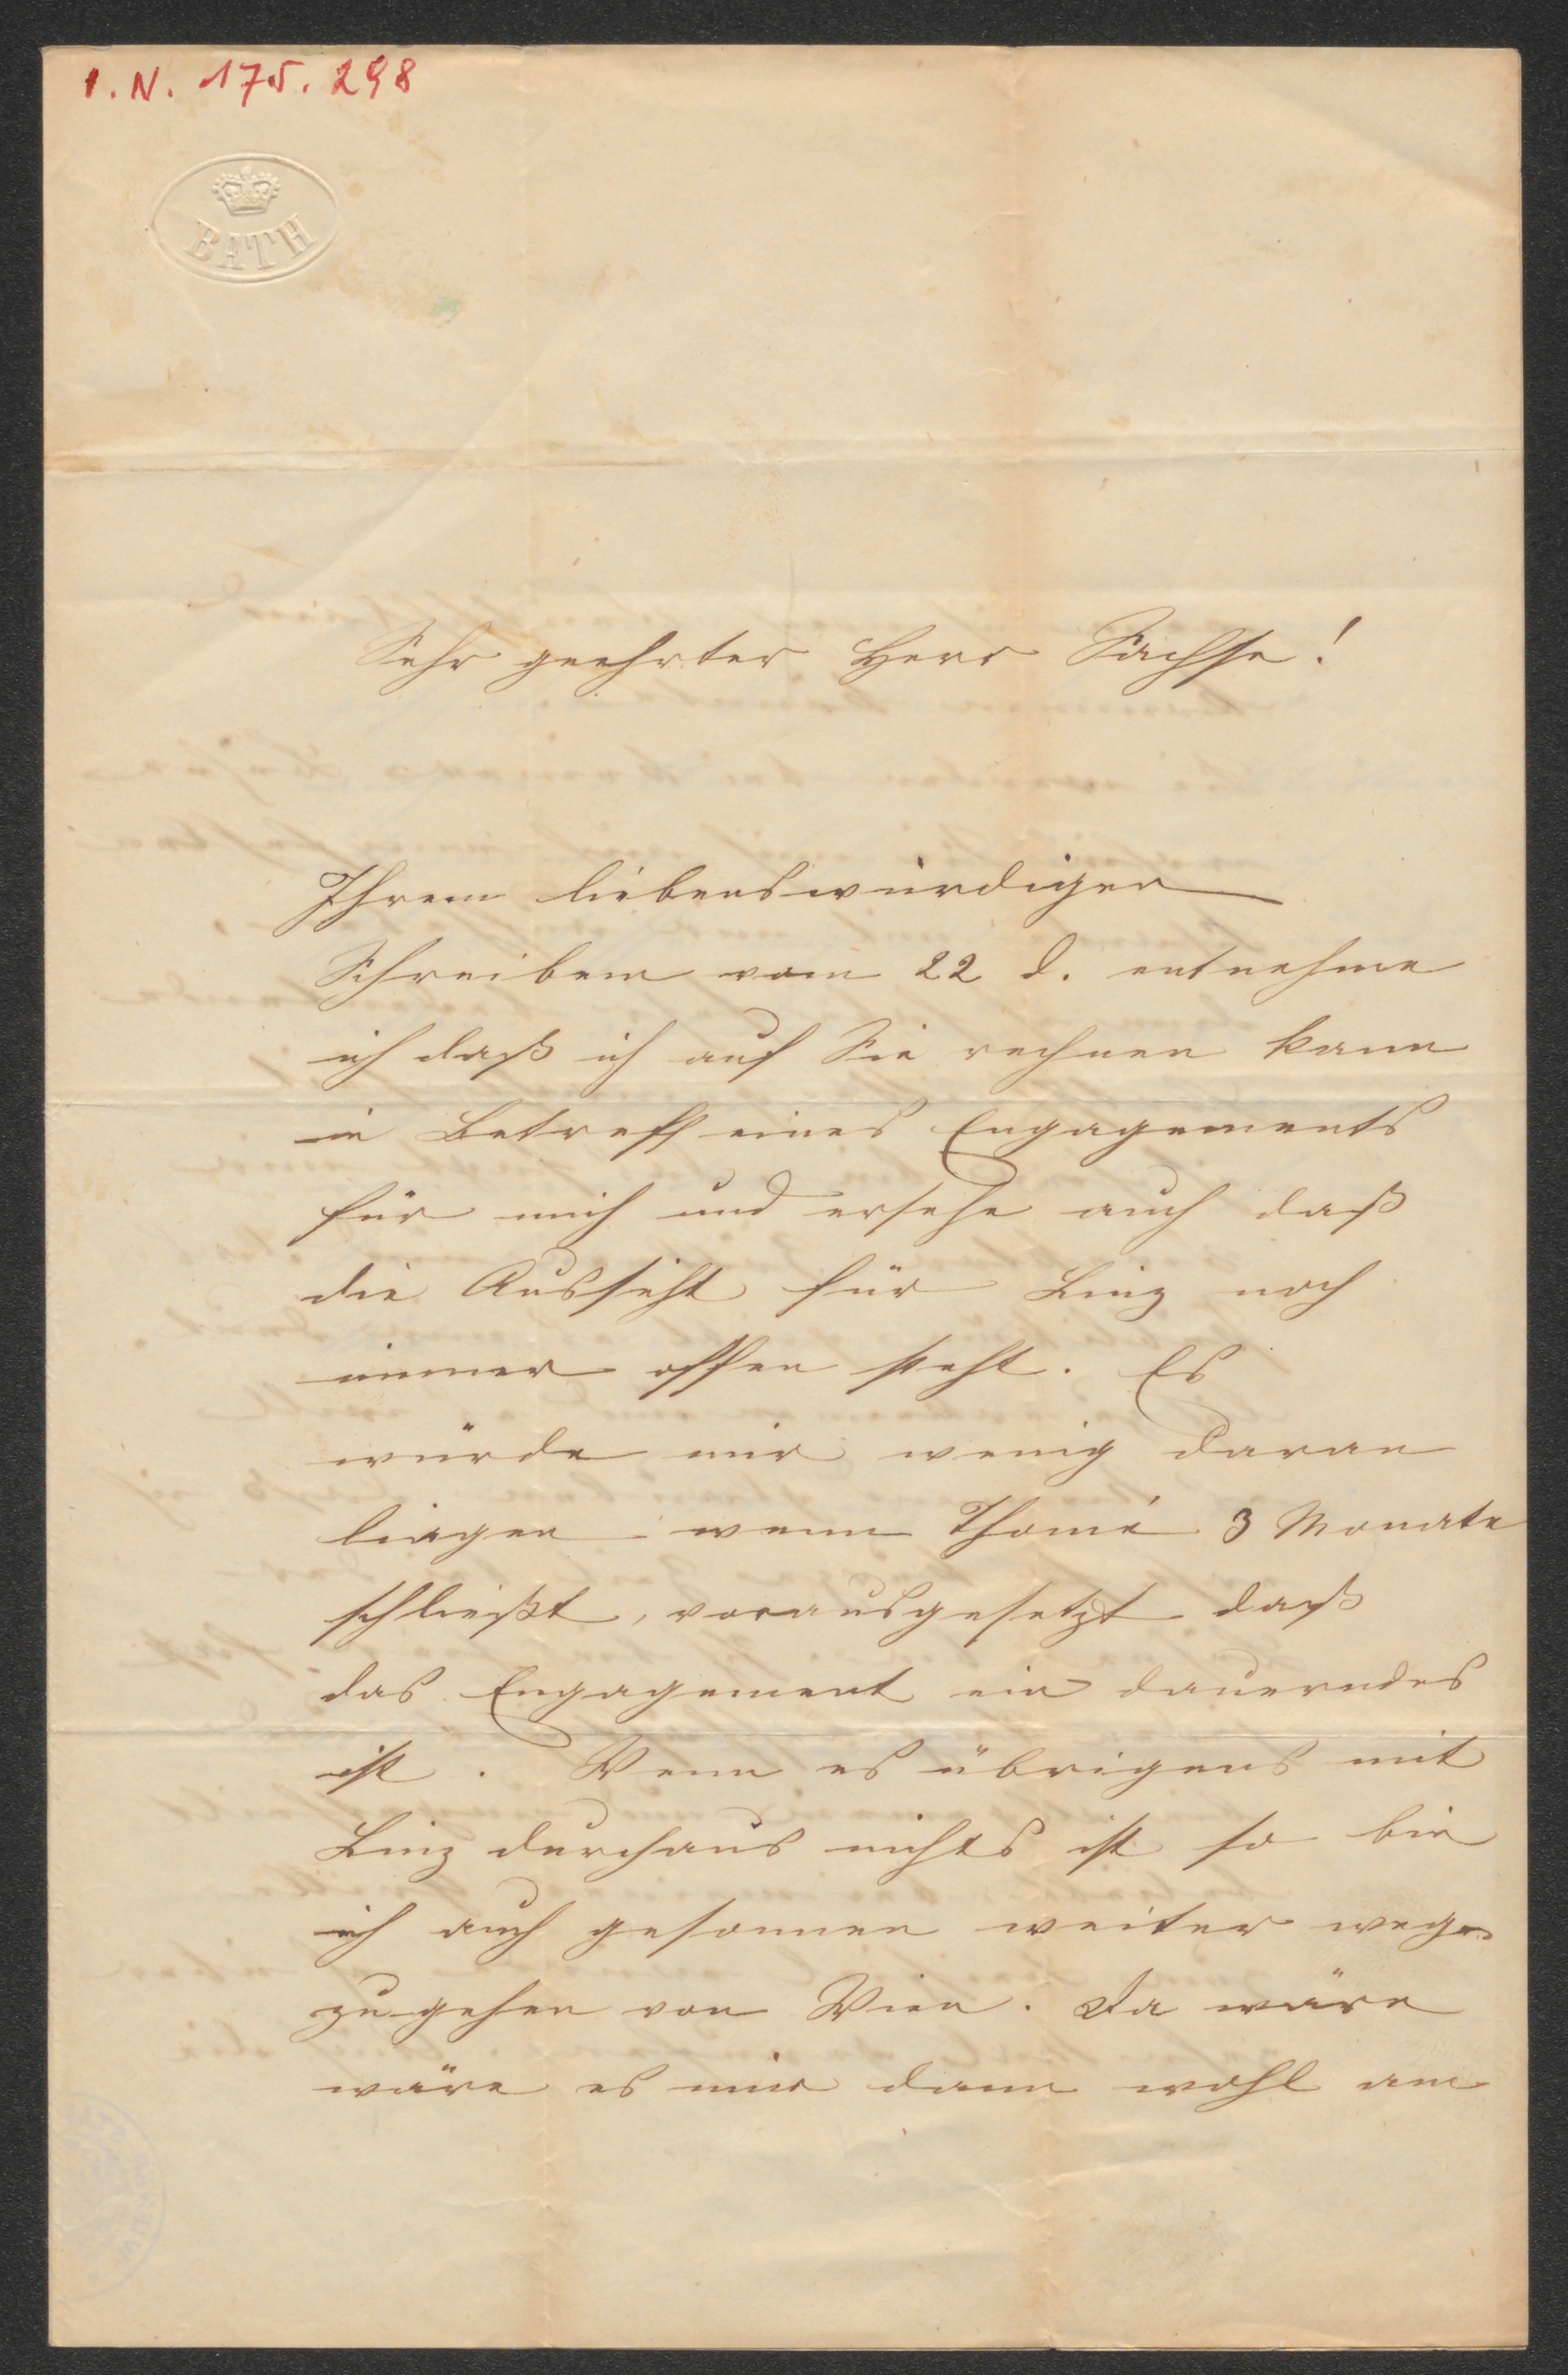 I. N. 175.298
BATH
Sehr geehrter Herr Sachse!
Ihrem liebenswürdigen
Schreiben vom 22 d. entnehme
ich daß ich auf Sie rechnen kann
in Betreff eines Engagements
für mich und ersehe auch daß
die Aussicht für Linz noch
immer offen steht. Es
würde mir wenig daran
liegen wenn Thomé 3 Monate
schließt, vorausgesetzt daß
das Engagement ein dauerndes
ist. Wenn es übrigens mit
Linz durchaus nichts ist so bin
ich auch gesonnen weiter weg
zu gehen von Wien. Da wäre
wäre es mir dann wohl am